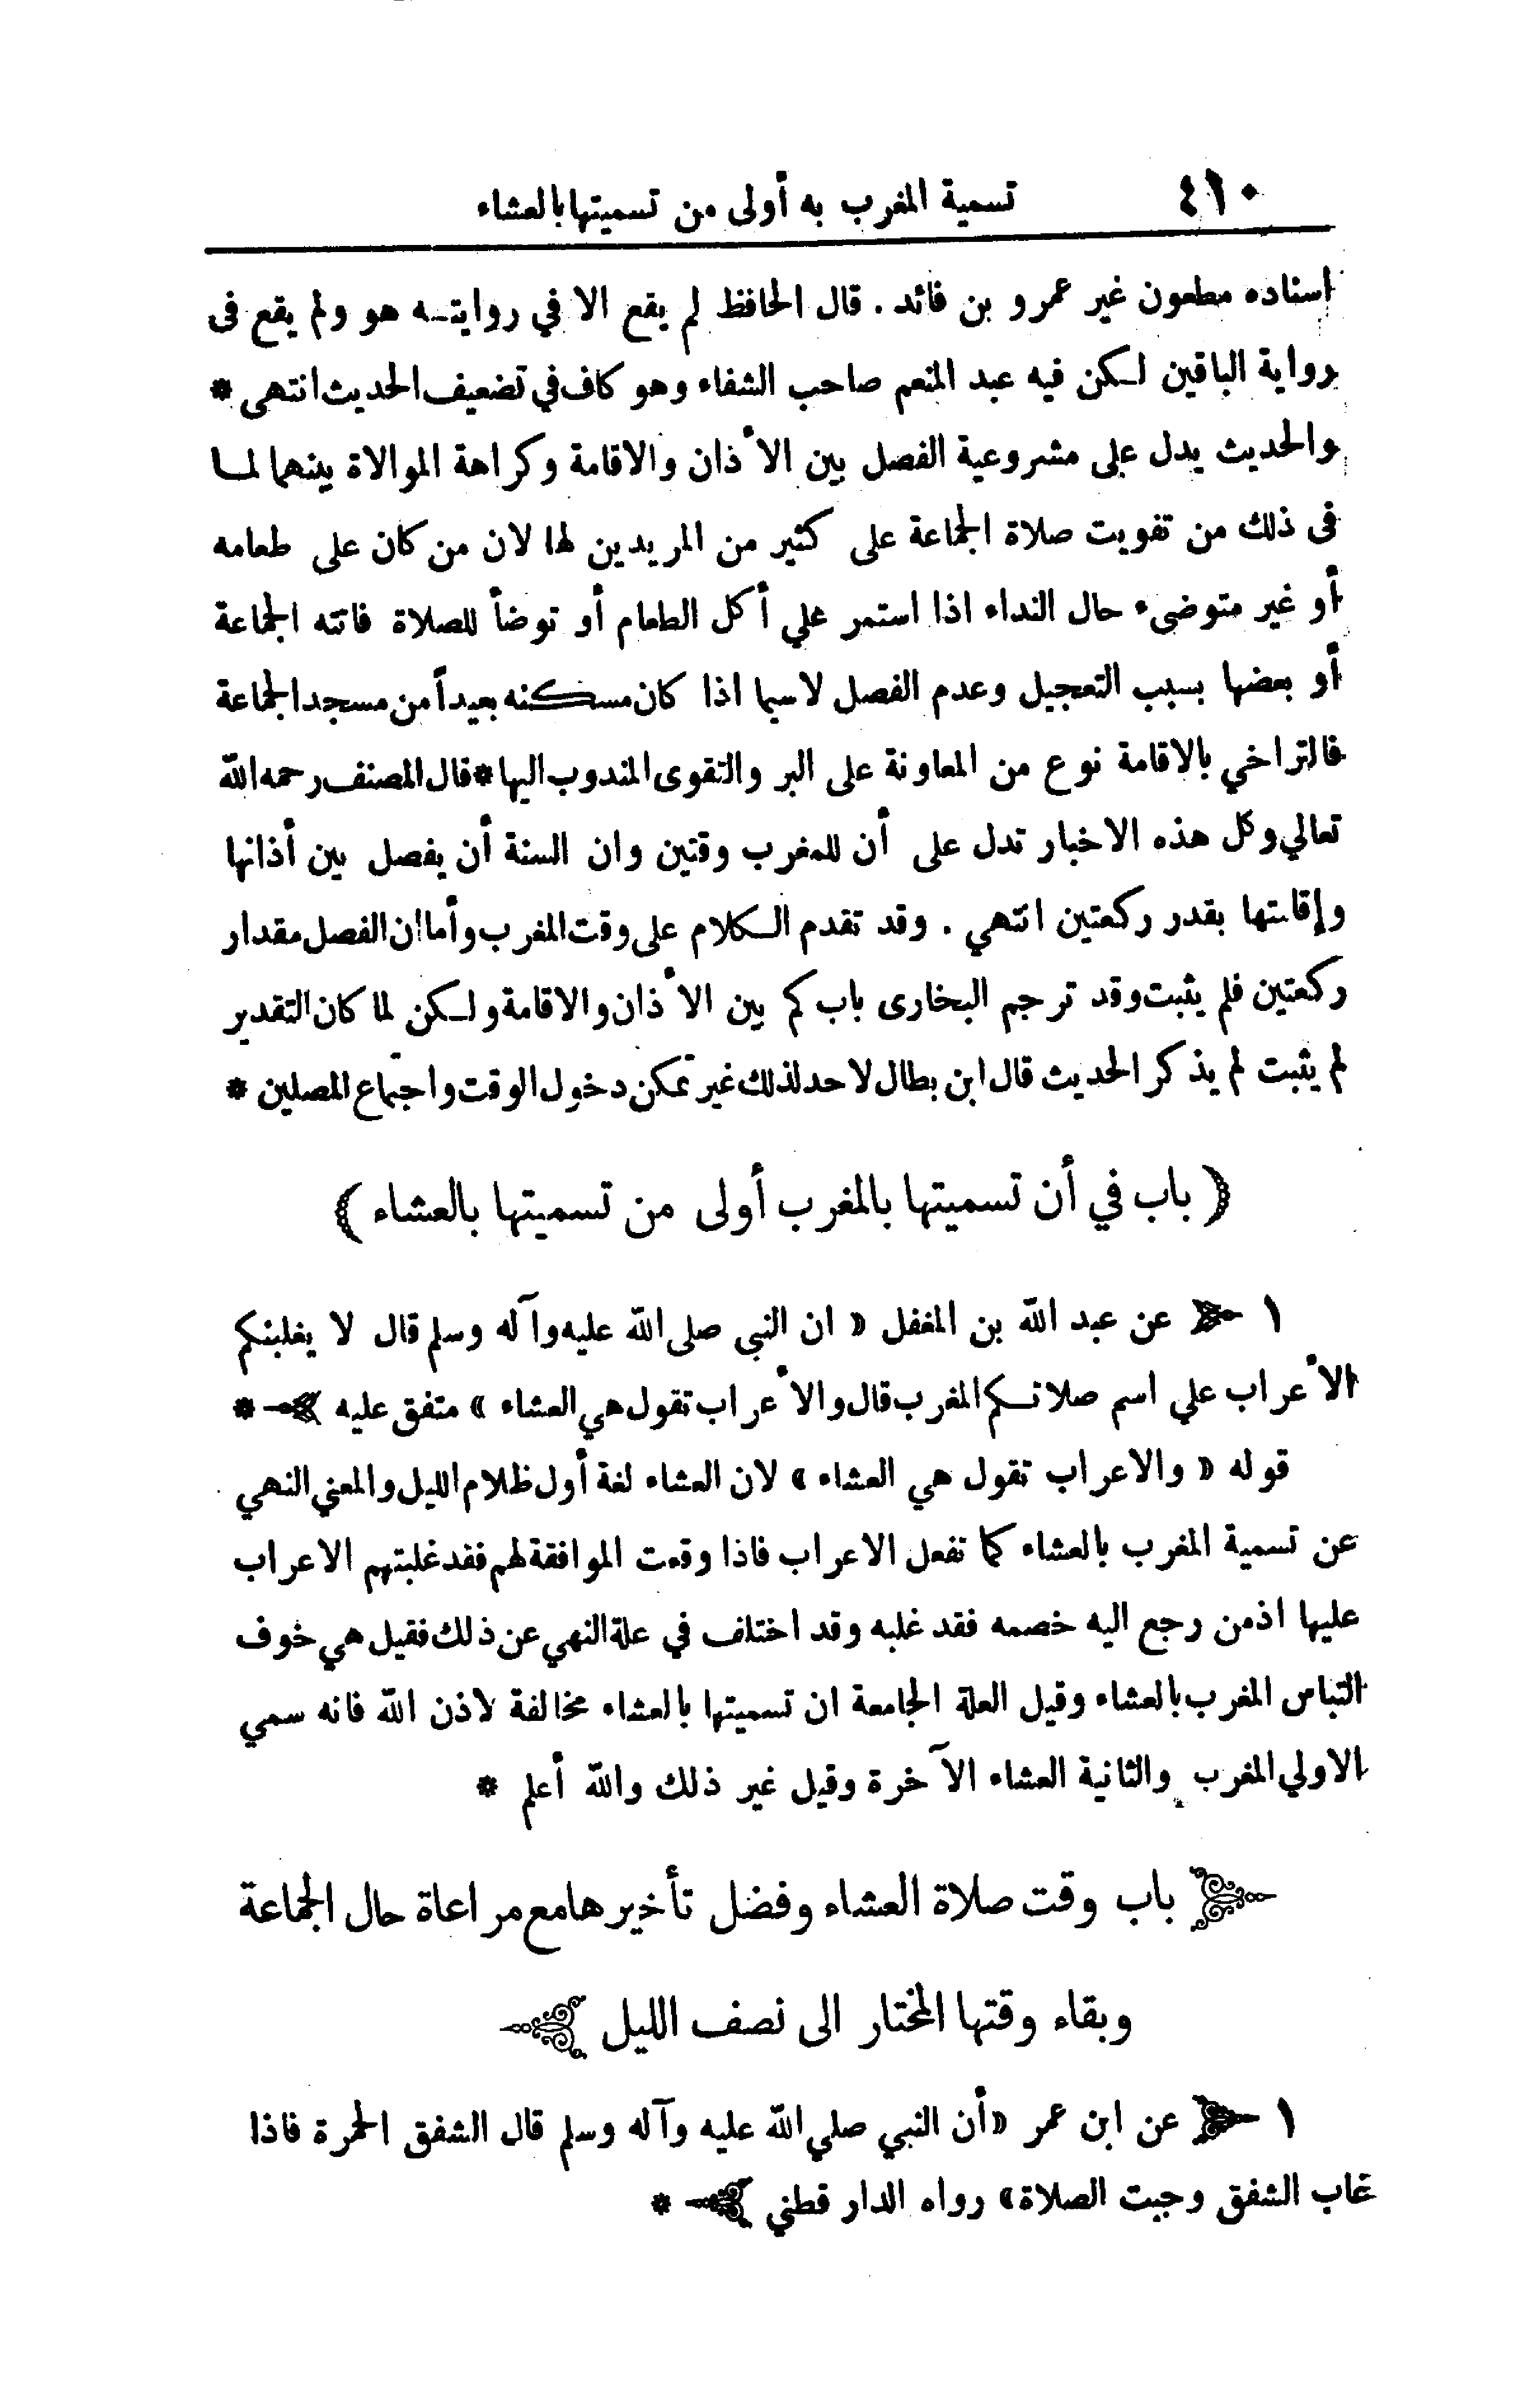 ٤١٠ تسمية المغرب به أولى من تسميتها بالعشاء
اسناده مطعون غير عمرو بن فائد . قال الحافظ لم يقع الا في روايته هو ولم يقع فى
رواية الباقين لكن فيه عبد المنعم صاحب الشفاء وهو كاف في تضعيف الحديث انتهى *
والحديث يدل على مشروعية الفصل بين الأذان والاقامة وكراهة الموالاة بينهما لما
فى ذلك من تفويت صلاة الجماعة على كثير من المريدين لها لان من كان على طعامه
أو غير متوضىء حال النداء اذا استمر علي أكل الطعام أو توضأ للصلاة فاتته الجماعة
أو بعضها بسبب التعجيل وعدم الفصل لاسيما اذا كان مسكنه بعيداً من مسجد الجماعة
فالتراخي بالاقامة نوع من المعاونة على البر والتقوى المندوب اليها * قال المصنف رحمه الله
تعالي وكل هذه الاخبار تدل على أن للمغرب وقتين وان السنة أن يفصل بين أذانها
وإقامتها بقدر ركعتين انتهي . وقد تقدم الكلام على وقت المغرب وأما ان الفصل مقدار
ركعتين فلم يثبت وقد ترجم البخارى باب كم بين الأذان والاقامة ولكن لما كان التقدير
لم يثبت لم يذكر الحديث قال ابن بطال لا حد لذلك غير تمكن دخول الوقت واجتماع المصلين *
( باب في أن تسميتها بالمغرب أولى من تسميتها بالعشاء )
١ عن عبد الله بن المغفل « ان النبي صلى الله عليه وآله وسلم قال لا يغلبنكم
الأعراب علي اسم صلاتكم المغرب قال والأعراب تقول هي العشاء » متفق عليه *
قوله « والاعراب تقول هي العشاء » لان العشاء لغة أول ظلام الليل والمعني النهي
عن تسمية المغرب بالعشاء كما تفعل الاعراب فاذا وقعت الموافقة لهم فقد غلبتهم الاعراب
عليها اذ من رجع اليه خصمه فقد غلبه وقد اختلف في علة النهي عن ذلك فقيل هي خوف
التباس المغرب بالعشاء وقيل العلة الجامعة ان تسميتها بالعشاء مخالفة لاذن الله فانه سمي
الاولي المغرب والثانية العشاء الآخرة وقيل غير ذلك والله أعلم *
باب وقت صلاة العشاء وفضل تأخيرها مع مراعاة حال الجماعة
وبقاء وقتها المختار الى نصف الليل
١ عن ابن عمر « أن النبي صلي الله عليه وآله وسلم قال الشفق الحمرة فاذا
غاب الشفق وجبت الصلاة » رواه الدار قطني *